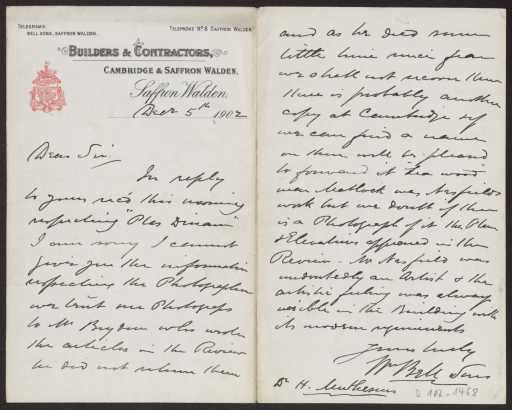 TELEGRAMS:
BELL SONS, SAFFRON WALDEN.
TELEPHONE Nº 8 SAFFRON WALDEN.
BUILDERS & CONTRACTORS,
CAMBRIDGE & SAFFRON WALDEN.
Saffron Walden,
Decr 5th 1902
Dear Sir,
In reply
to yours rec'd this morning
respecting "Plas Dinam"
I am sorry I cannot
give you the information
respecting the Photographer
we lent our Photographs
to Mr Brydon who wrote
the articles in the Review
he did not return them
and as he died some
little time since fear
we shall not recover them
there is probably another
copy at Cambridge if
we can find a name
on them will be pleased
to forward it Lea wood
near Matlock was Nesfields
work but we doubt if there
is a Photograph of it the Plan
& Elevations appeared in the
Review. Mr Nesfield was
undoubtedly an Artist & the
artistic feeling was always
visible in the Building with
its modern requirements
Yours truly
Wm Bell & Sons
Dr H. Muthesius
D 102-1468